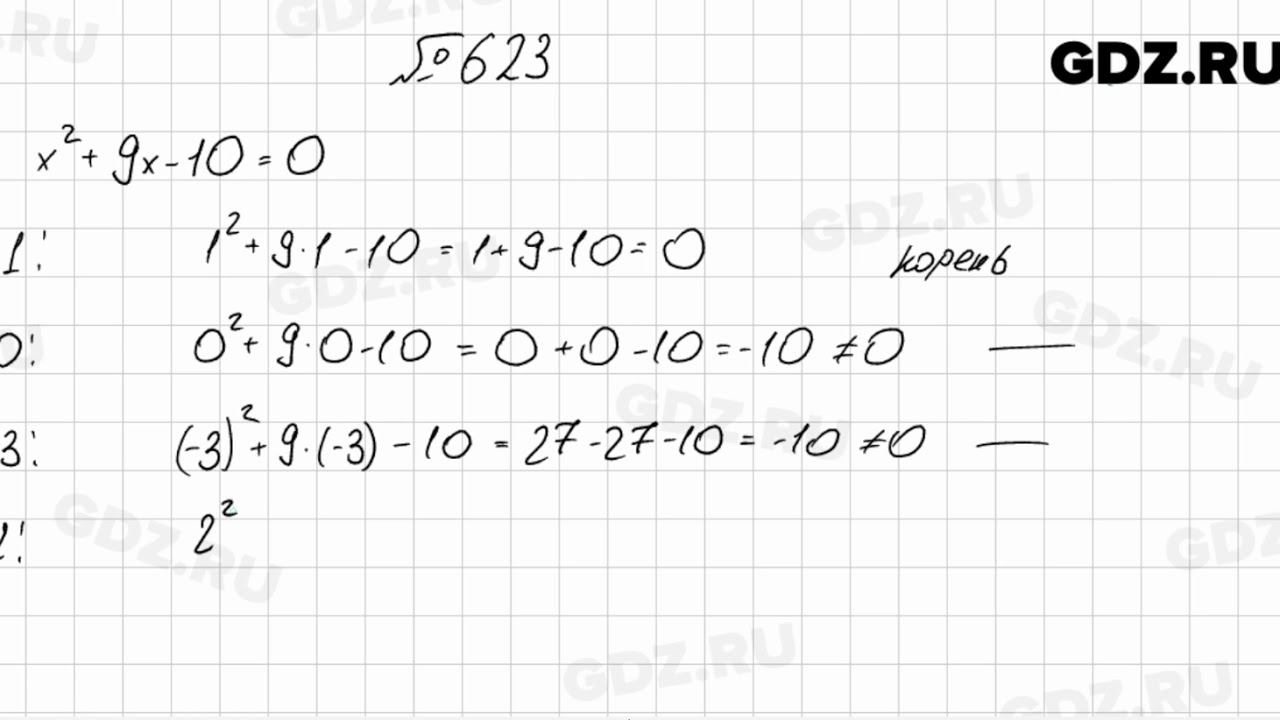 № 623
GDZ.RU
x² + 9x - 10 = 0
1: 1² + 9·1 - 10 = 1 + 9 - 10 = 0 корень
0: 0² + 9·0 - 10 = 0 + 0 - 10 = -10 ≠ 0 —
3: (-3)² + 9·(-3) - 10 = 27 - 27 - 10 = -10 ≠ 0 —
2²